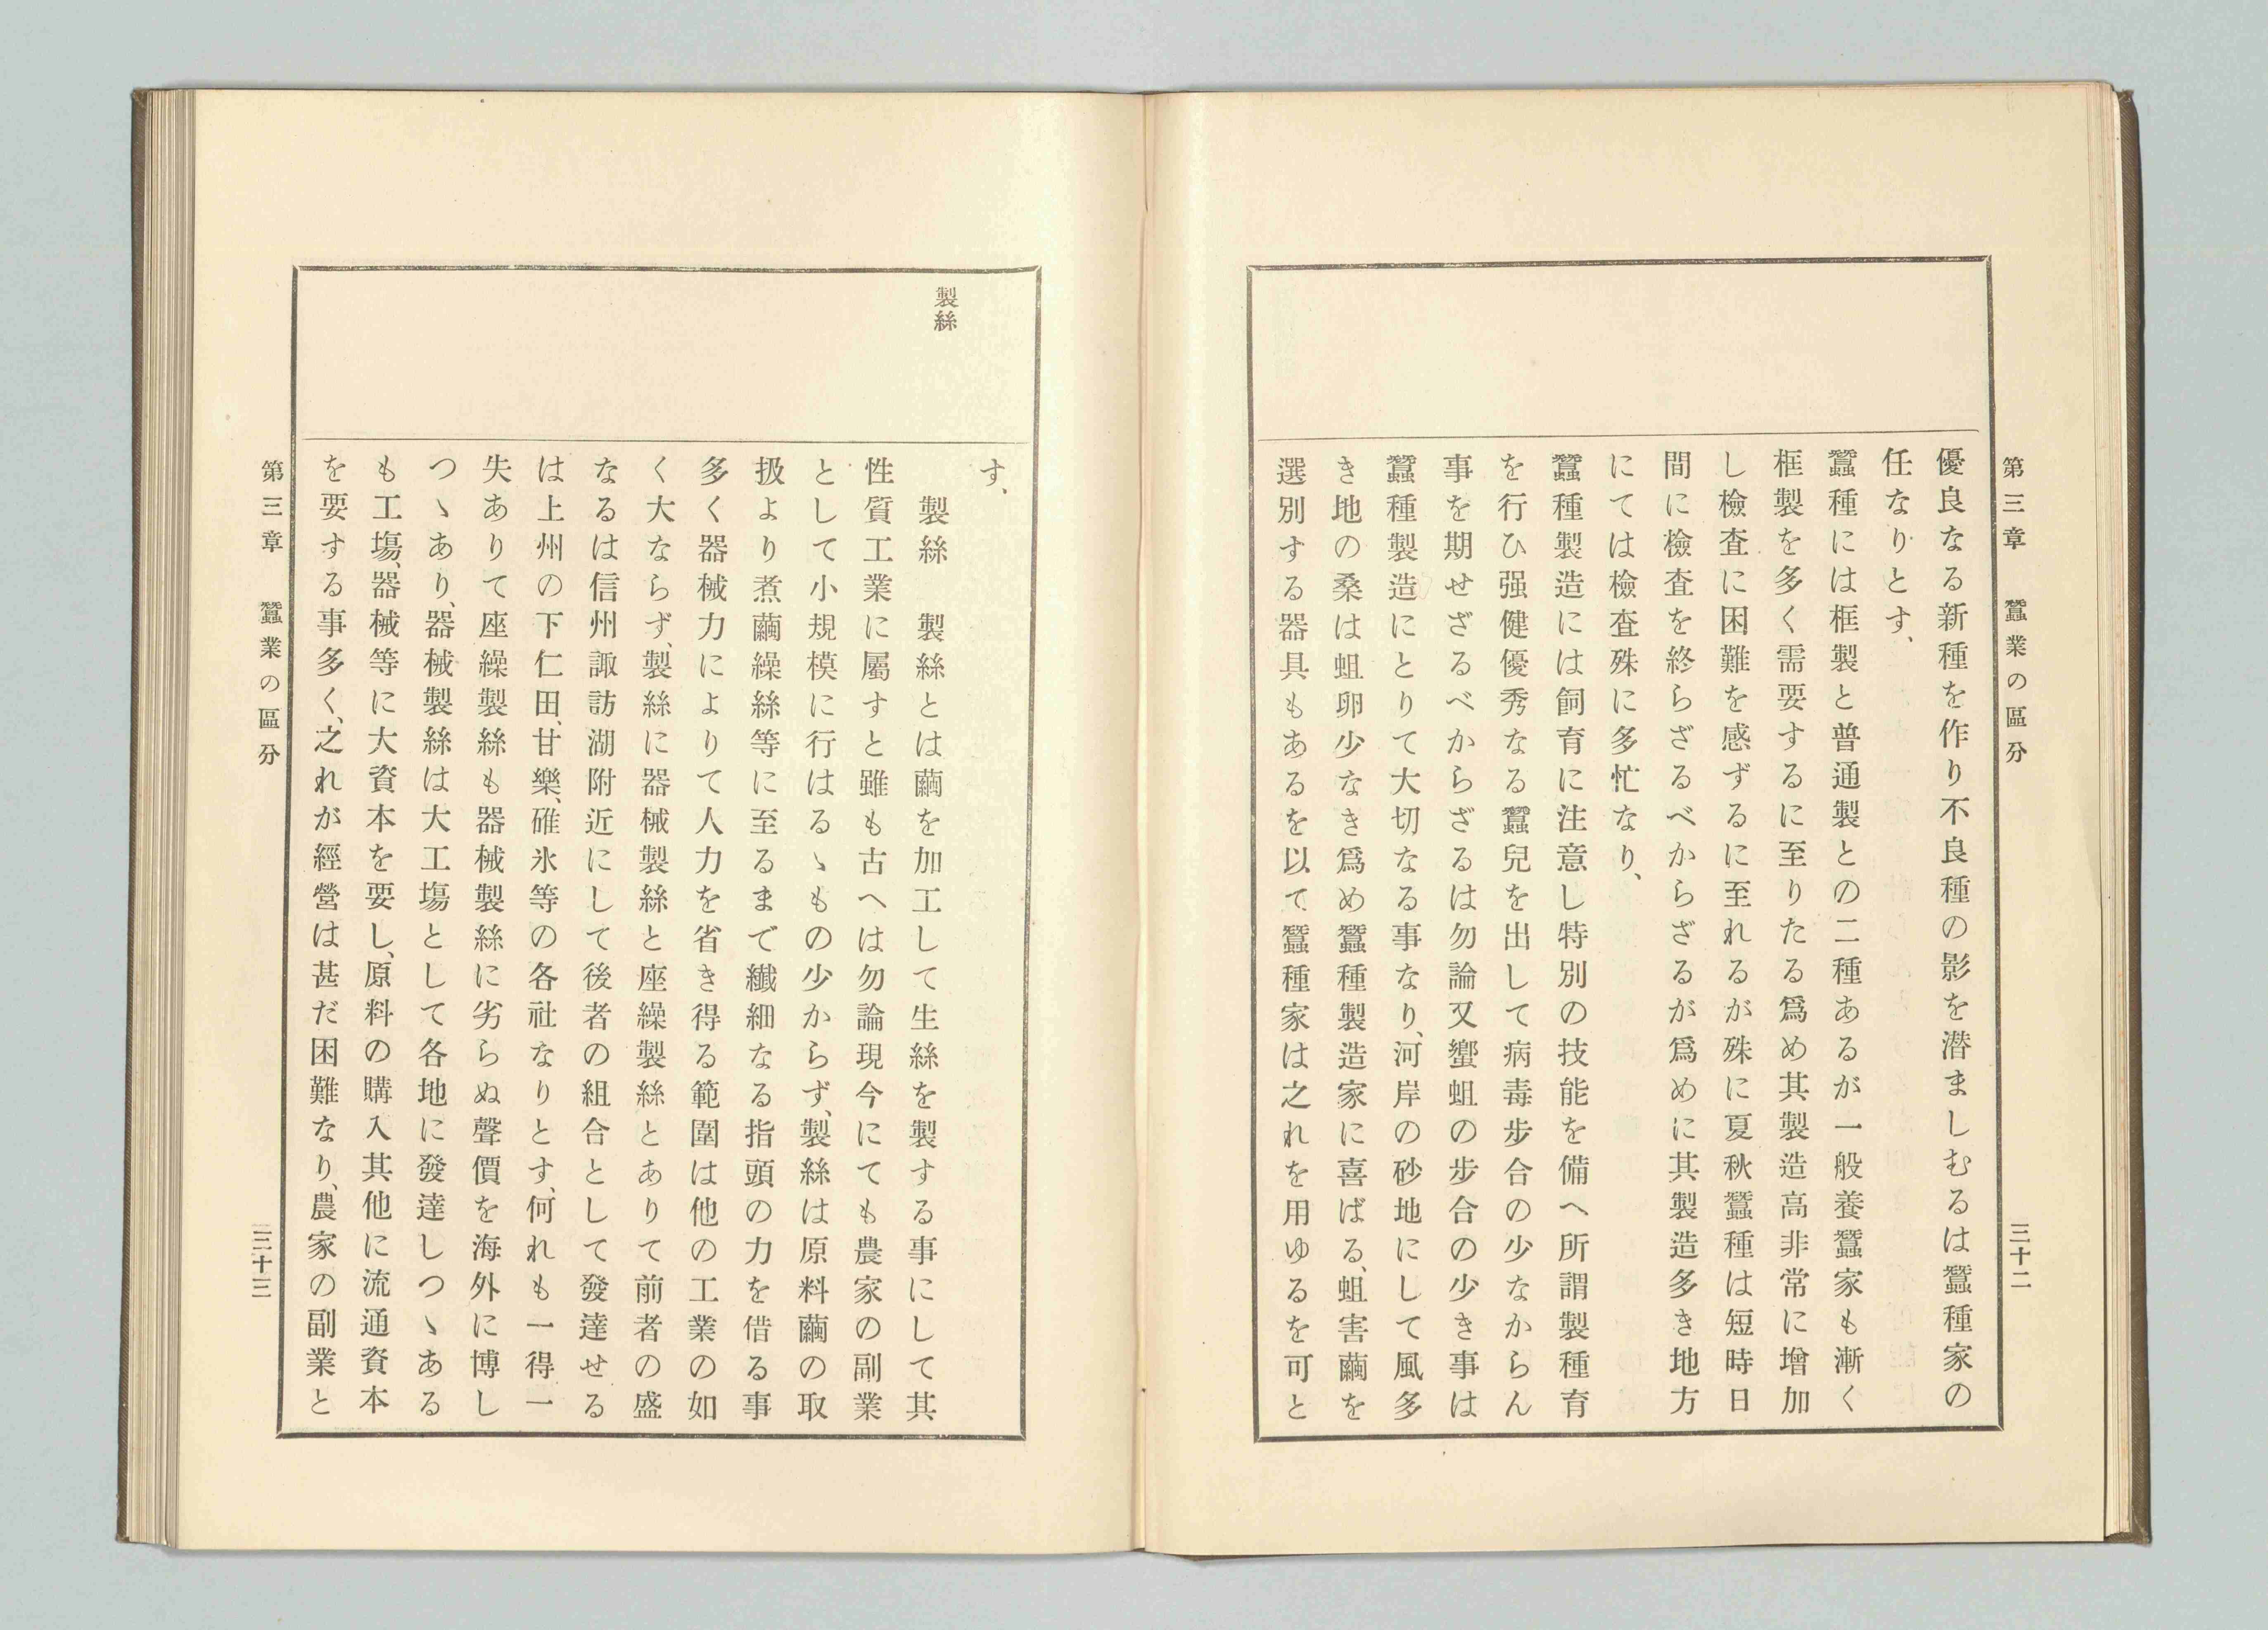 第三章　蠶業の區分
三十二
優良なる新種を作り不良種の影を潜ましむるは蠶種家の
任なりとす、
蠶種には框製と普通製との二種あるが一般養蠶家も漸く
框製を多く需要するに至りたる爲め其製造高非常に增加
し檢査に困難を感ずるに至れるが殊に夏秋蠶種は短時日
間に檢査を終らざるべからざるが爲めに其製造多き地方
にては檢査殊に多忙なり、
蠶種製造には飼育に注意し特別の技能を備へ所謂製種育
を行ひ强健優秀なる蠶兒を出して病毒步合の少なからん
事を期せざるべからざるは勿論又蠁蛆の步合の少き事は
蠶種製造にとりて大切なる事なり、河岸の砂地にして風多
き地の桑は蛆卵少なき爲め蠶種製造家に喜ばる、蛆害繭を
選別する器具もあるを以て蠶種家は之れを用ゆるを可と
す、
製絲
製絲　製絲とは繭を加工して生絲を製する事にして其
性質工業に屬すと雖も古へは勿論現今にても農家の副業
として小規模に行はるゝもの少からず、製絲は原料繭の取
扱より煮繭繰絲等に至るまで纖細なる指頭の力を借る事
多く器械力によりて人力を省き得る範圍は他の工業の如
く大ならず、製絲に器械製絲と座繰製絲とありて前者の盛
なるは信州諏訪湖附近にして後者の組合として發達せる
は上州の下仁田、甘樂、碓氷等の各社なりとす、何れも一得一
失ありて座繰製絲も器械製絲に劣らぬ聲價を海外に博し
つゝあり、器械製絲は大工場として各地に發達しつゝある
も工場、器械等に大資本を要し、原料の購入其他に流通資本
を要する事多く、之れが經營は甚だ困難なり、農家の副業と
第三章　蠶業の區分
三十三